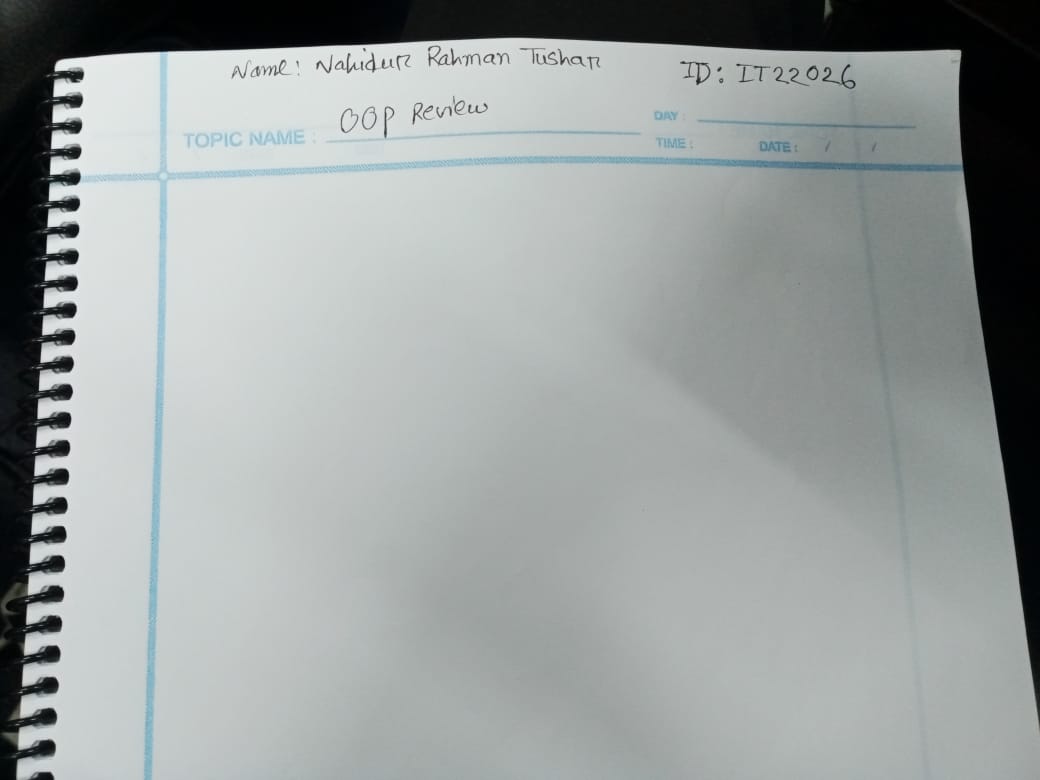 Name: Nahidur Rahman Tushar ID: IT22026
TOPIC NAME : OOP Review
DAY :
TIME : DATE : / /